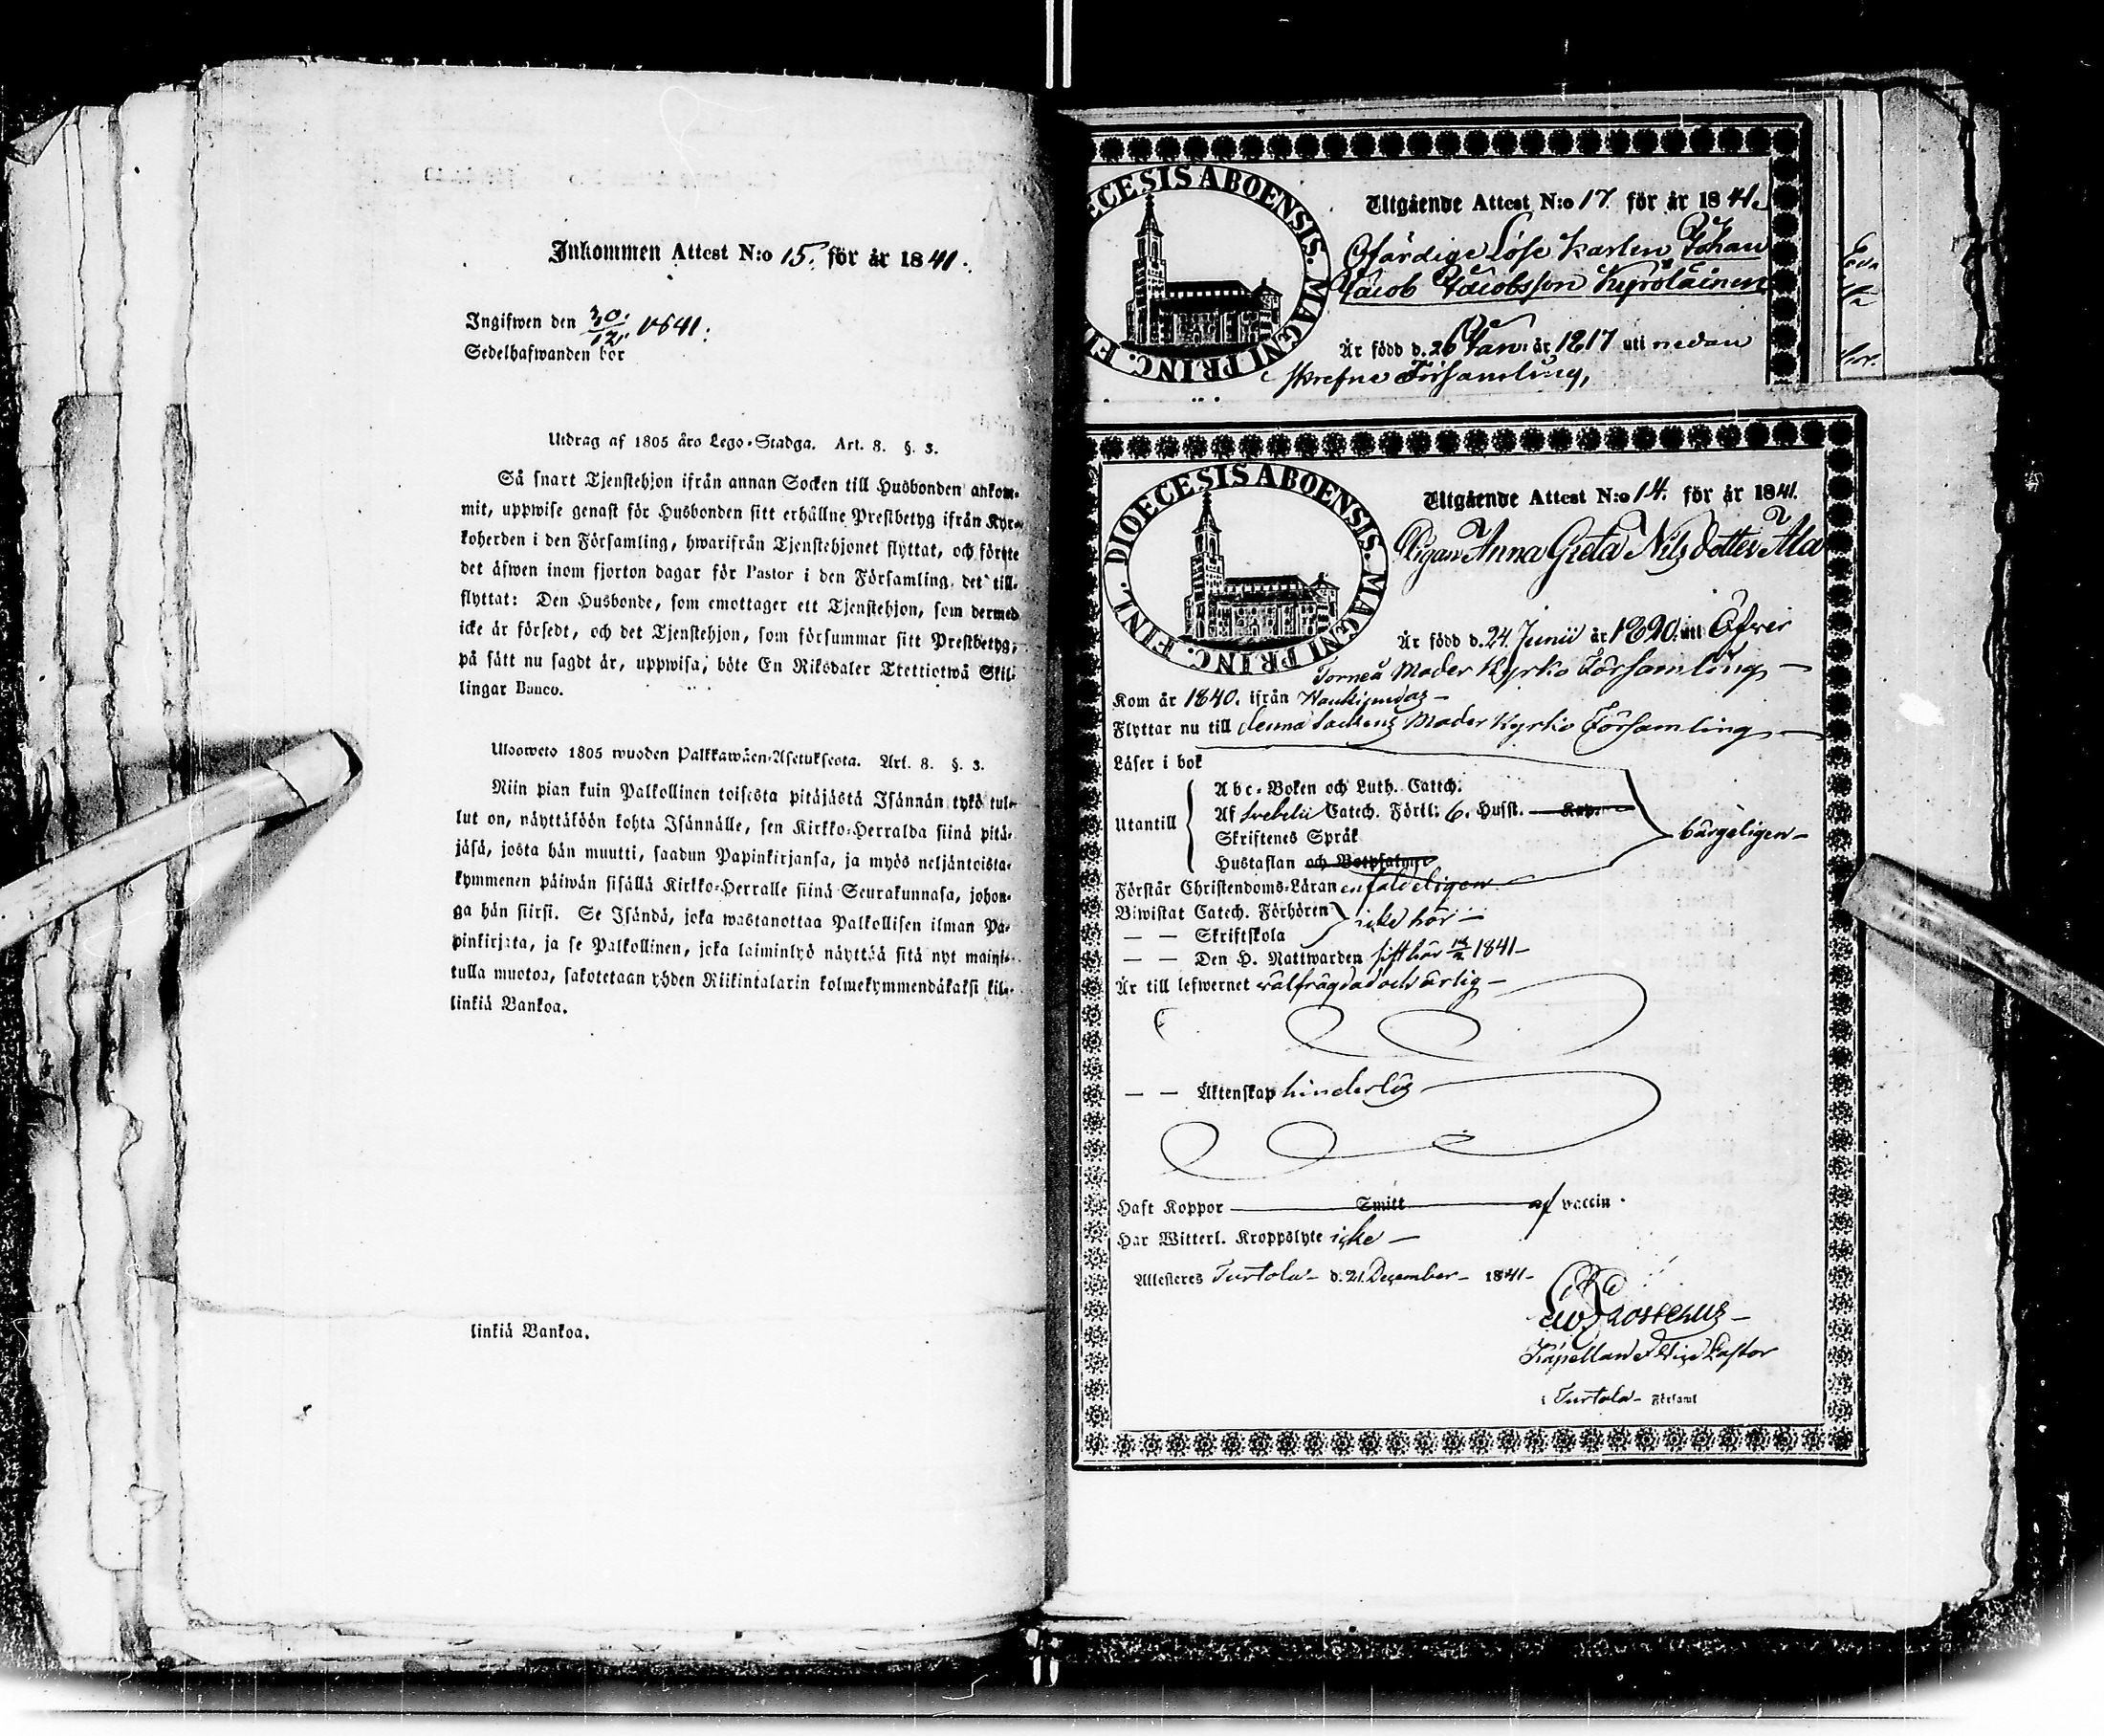 Inkommen Attest N:o 15. för år 1841.
Ingifwen den 30/12. 1841.
Sedelhafwanden bör
Utdrag af 1805 års Lego-Stadga. Art. 8. §. 3.
Så snart Tjenstehjon ifrån annan Socken till Husbonden ankom-
mit, uppwise genast för Husbonden sitt erhållne Prestbetyg ifrån Kyr-
koherden i den Församling, hwarifrån Tjenstehjonet flyttat, och förete
det äfwen inom fjorton dagar för Pastor i den Församling, det till-
flyttat: Den Husbonde, som emottager ett Tjenstehjon, som dermed
icke är försedt, och det Tjenstehjon, som försummar sitt Prestbetyg,
på sätt nu sagdt är, uppwisa, böte En Riksdaler Trettiotwå Skil-
lingar Banco.
Ulosweto 1805 wuoden Palkkawäen-Asetuksesta. Art. 8. §. 3.
Niin pian kuin Palkollinen toisesta pitäjästä Isännän tykö tul-
lut on, näyttäköön kohta Isännälle, sen Kirkko-Herralda siinä pitä-
jäsä, josta hän muutti, saadun Papinkirjansa, ja myös neljäntoista-
kymmenen päiwän sisällä Kirkko-Herralle siinä Seurakunnasa, johon-
ga hän siirsi. Se Isändä, joka wastanottaa Palkollisen ilman Pa-
pinkirjata, ja se Palkollinen, joka laiminlyö näyttää sitä nyt maini-
tulla muotoa, sakotetaan yhden Riikintalarin kolmekymmendäkaksi kil-
linkiä Bankoa.
linkiä Bankoa.
DIOECESIS ABOENSIS. MAGNI PRINC. FINL.
Utgående Attest N:o 17. för år 1841.
Ofärdige Löse Karlen Johan
Jacob Jacobsson Kyrölainen
Är född d. 26 Jan: år 1817 uti nedan
skrefne Församling,
DIOECESIS ABOENSIS. MAGNI PRINC. FINL.
Utgående Attest N:o 14. för år 1841.
Pigan Anna Greta Nilsdotter Ala
Är född d. 24 Junii år 1820. uti Öfver
Torneå Moder Kyrko Församling
Kom år 1840. ifrån
Flyttar nu till denna Sockens Moder Kyrko Församling
Läser i bok
Abc-Boken och Luth. Catech.
Utantill
Af Svebelii Catech. Förkl: 6. Hufst. Kap.
Skriftenes Språk
Hustaflan och Botpsalmer
bärgeligen
Förstår Christendoms-Läran enfaldeligen
Biwistat Catech. Förhören
— — Skriftskola
icke här
— — Den H. Nattwarden sist här 1841
Är till lefwernet välfrägdad och ärlig
— — Äktenskap hinderlös
Haft Koppor Smitt af vaccin.
Har Witterl. Kroppslyte icke
Attesteres Turtola d. 21. December 1841
Kapellan & Vice Pastor
i Turtola Församl